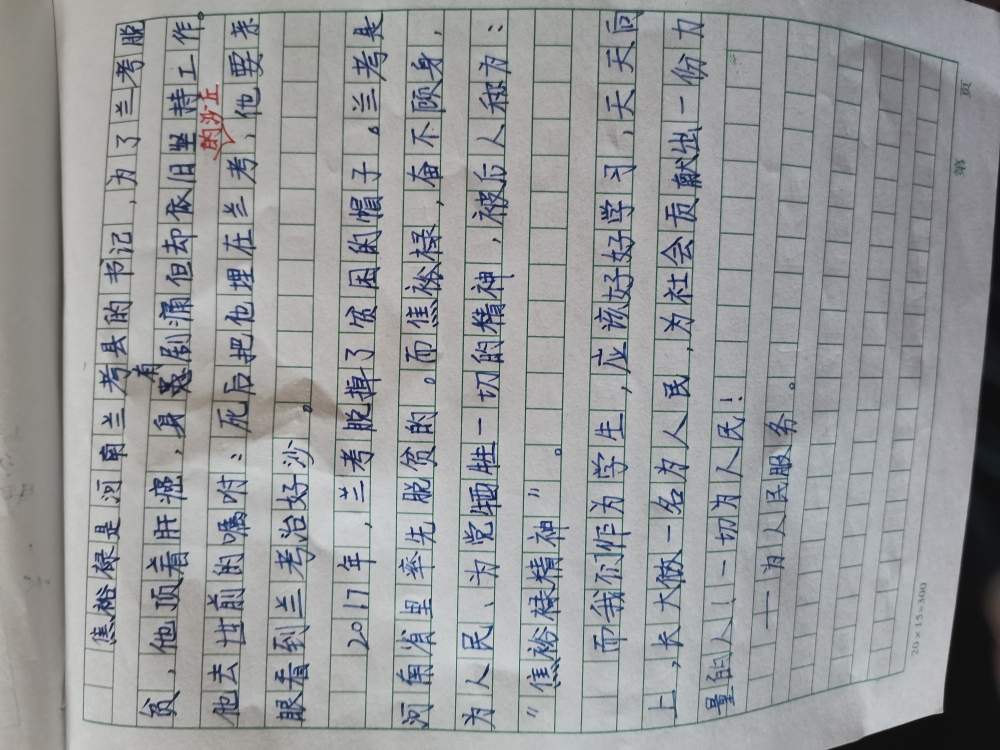 焦裕禄是河南兰考县的书记，为了兰考脱
贫，他顶着肝癌，身患有剧痛但却依旧坚持工作。
他去世前的嘱咐：死后把他埋在兰考的沙丘，他要亲
眼看到兰考治好沙。
2017年，兰考脱掉了贫困的帽子。兰考是
河南省里率先脱贫的。而焦裕禄，奋不顾身，
为人民、为党牺牲一切的精神，被后人称为：
“焦裕禄精神”。
而我们作为学生，应该好好学习，天天向
上，长大做一名为人民，为社会贡献出一份力
量的人！一切为人民！
——为人民服务。
第 页
20×15=300